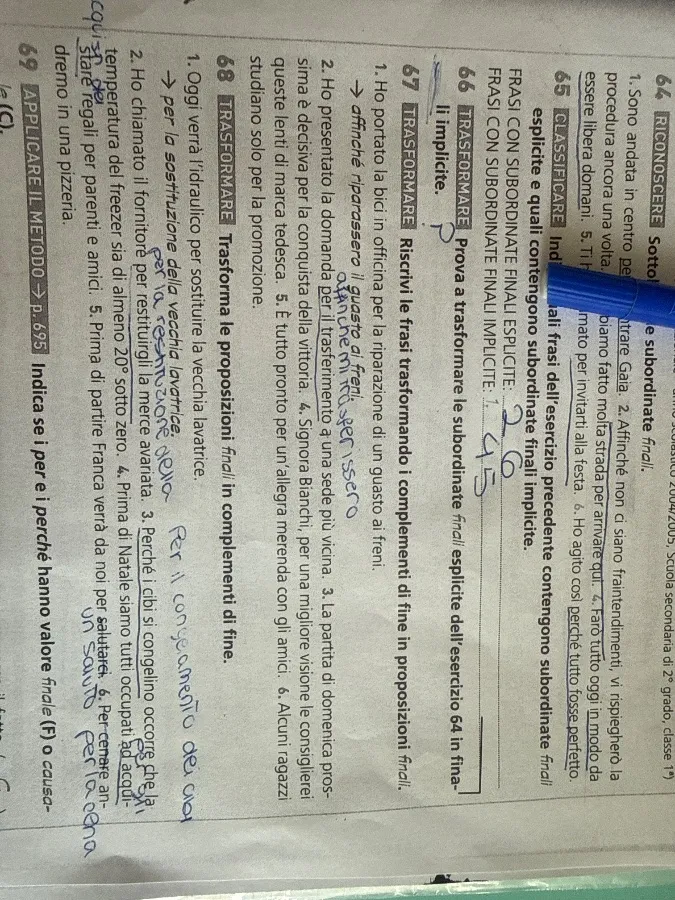 anno scolastico 2004/2005, Scuola secondaria di 2° grado, classe 1ª)
64 RICONOSCERE Sottol e subordinate finali.
1. Sono andata in centro pe ntrare Gaia. 2. Affinché non ci siano fraintendimenti, vi rispiegherò la
procedura ancora una volta. biamo fatto molta strada per arrivare qui. 4. Farò tutto oggi in modo da
essere libera domani. 5. Ti h mato per invitarti alla festa. 6. Ho agito così perché tutto fosse perfetto.
65 CLASSIFICARE Ind uali frasi dell'esercizio precedente contengono subordinate finali
esplicite e quali contengono subordinate finali implicite.
FRASI CON SUBORDINATE FINALI ESPLICITE: 2 6
FRASI CON SUBORDINATE FINALI IMPLICITE: 1. 4 5
66 TRASFORMARE Prova a trasformare le subordinate finali esplicite dell'esercizio 64 in fina-
li implicite.
67 TRASFORMARE Riscrivi le frasi trasformando i complementi di fine in proposizioni finali.
1. Ho portato la bici in officina per la riparazione di un guasto ai freni.
→ affinché riparassero il guasto ai freni.
affinche mi trasferissero
2. Ho presentato la domanda per il trasferimento a una sede più vicina. 3. La partita di domenica pros-
sima è decisiva per la conquista della vittoria. 4. Signora Bianchi, per una migliore visione le consiglierei
queste lenti di marca tedesca. 5. È tutto pronto per un'allegra merenda con gli amici. 6. Alcuni ragazzi
studiano solo per la promozione.
68 TRASFORMARE Trasforma le proposizioni finali in complementi di fine.
1. Oggi verrà l'idraulico per sostituire la vecchia lavatrice.
→ per la sostituzione della vecchia lavatrice.
per la restituzione della Per il congelamento dei cibi
2. Ho chiamato il fornitore per restituirgli la merce avariata. 3. Perché i cibi si congelino occorre che la
temperatura del freezer sia di almeno 20° sotto zero. 4. Prima di Natale siamo tutti occupati ad acqui-
stare regali per parenti e amici. 5. Prima di partire Franca verrà da noi per salutarci. 6. Per cenare an-
dremo in una pizzeria.
un saluto per la cena
69 APPLICARE IL METODO → p. 695 Indica se i per e i perché hanno valore finale (F) o causa-
le (C).